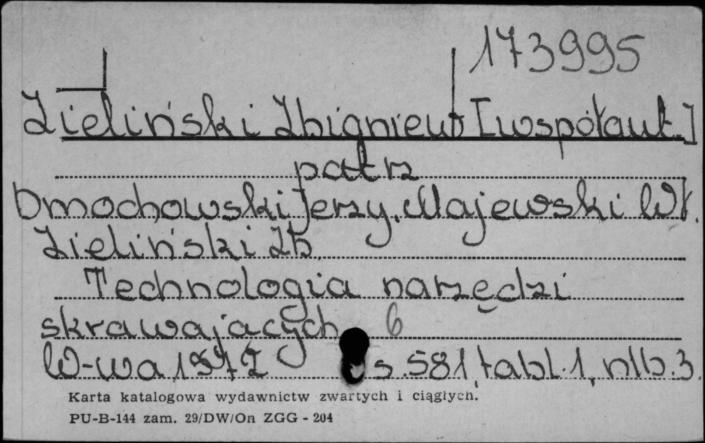 173995
Zieliński Zbigniew [współaut.]
patrz
Dmochowski Jerzy, Majewski Wł.
Zieliński Zb.
Technologia narzędzi
skrawających 6
W-wa 1972 s. 581, tabl. 1, nlb. 3.
Karta katalogowa wydawnictw zwartych i ciągłych.
PU-B-144 zam. 29/DW/On ZGG - 204